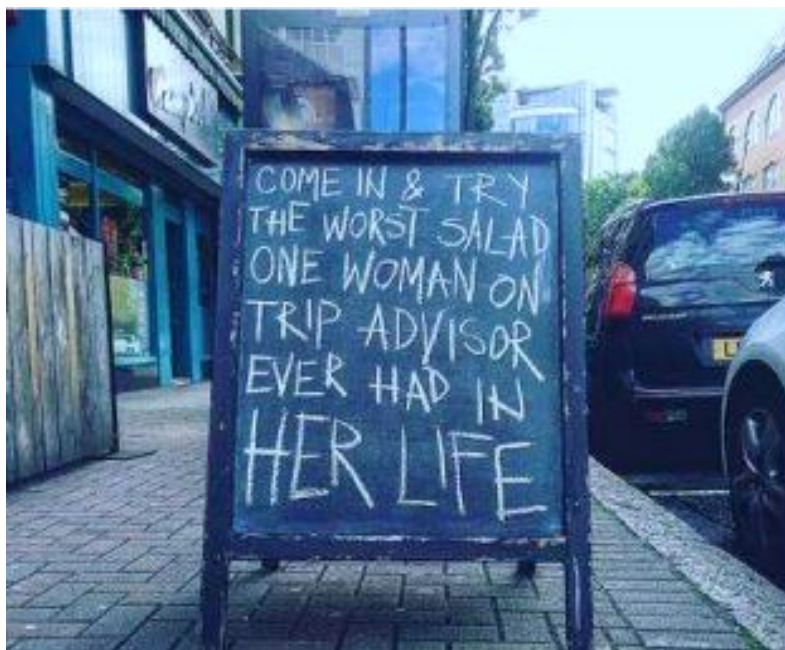 COME IN & TRY
THE WORST SALAD
ONE WOMAN ON
TRIP ADVISOR
EVER HAD IN
HER LIFE